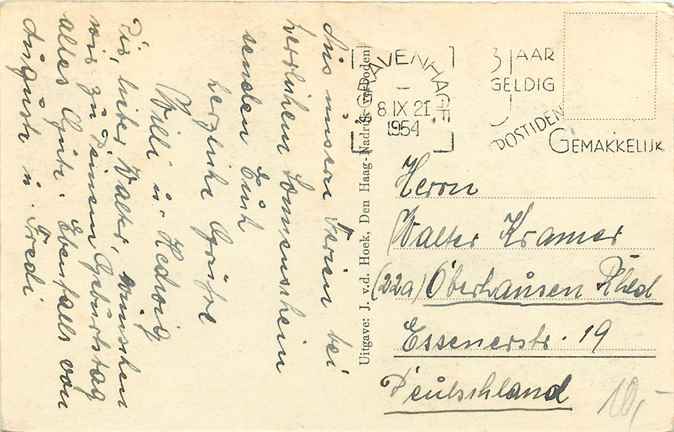 Aus unsern Ferien bei
herrlichem Sonnenschein
senden Euch
herzliche Grüße
Willi u. Hedwig
Dir, lieber Walter, wünschen
wir zu Deinem Geburtstag
alles Gute. Ebenfalls von
Auguste u. Fredi
Uitgave: J. v.d. Hoek, Den Haag-Nadruk Verboden
'S GRAVENHAGE
8 IX 21
1954
3 JAAR
GELDIG
POSTIDEN
GEMAKKELIJK
Herrn
Walter Kramer
(22a) Oberhausen Rhld
Essenerstr. 19
Deutschland
10,-